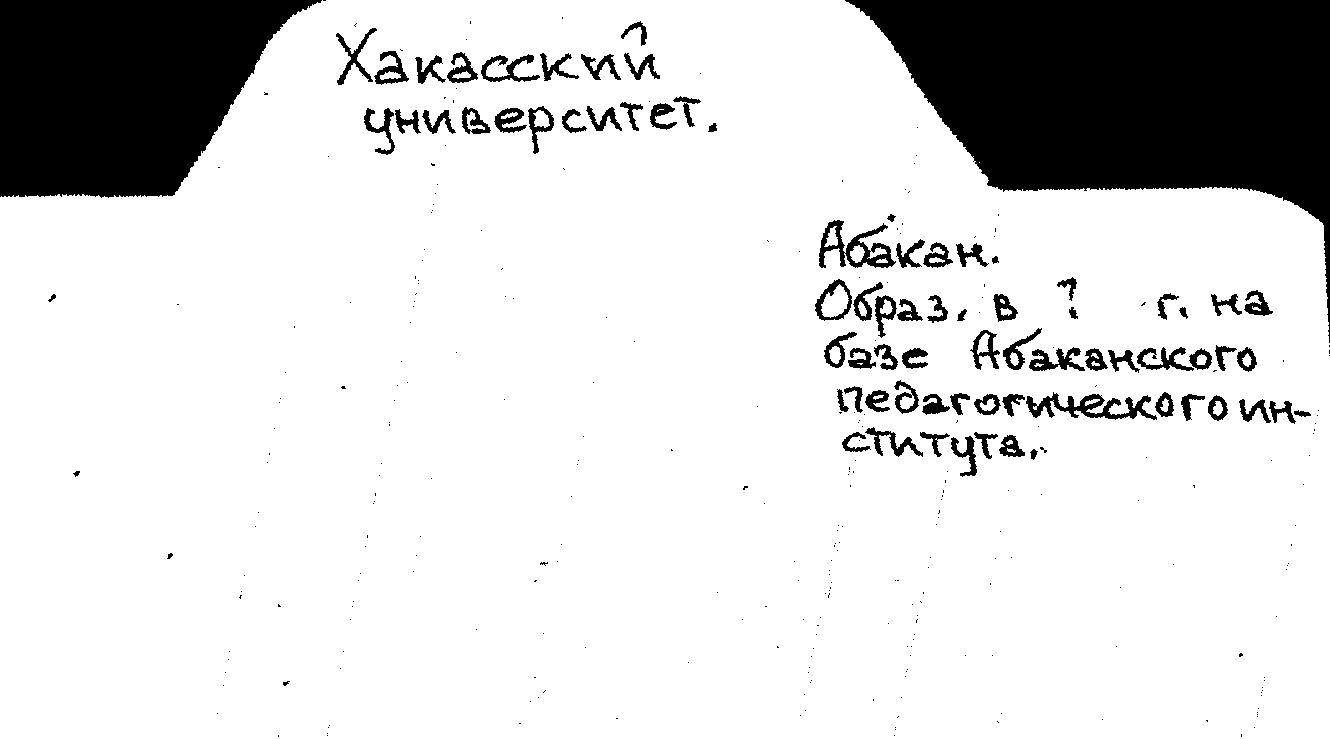 Хакасский
университет.
Абакан.
Образ. в ? г. на
базе Абаканского
педагогического ин-
ститута.